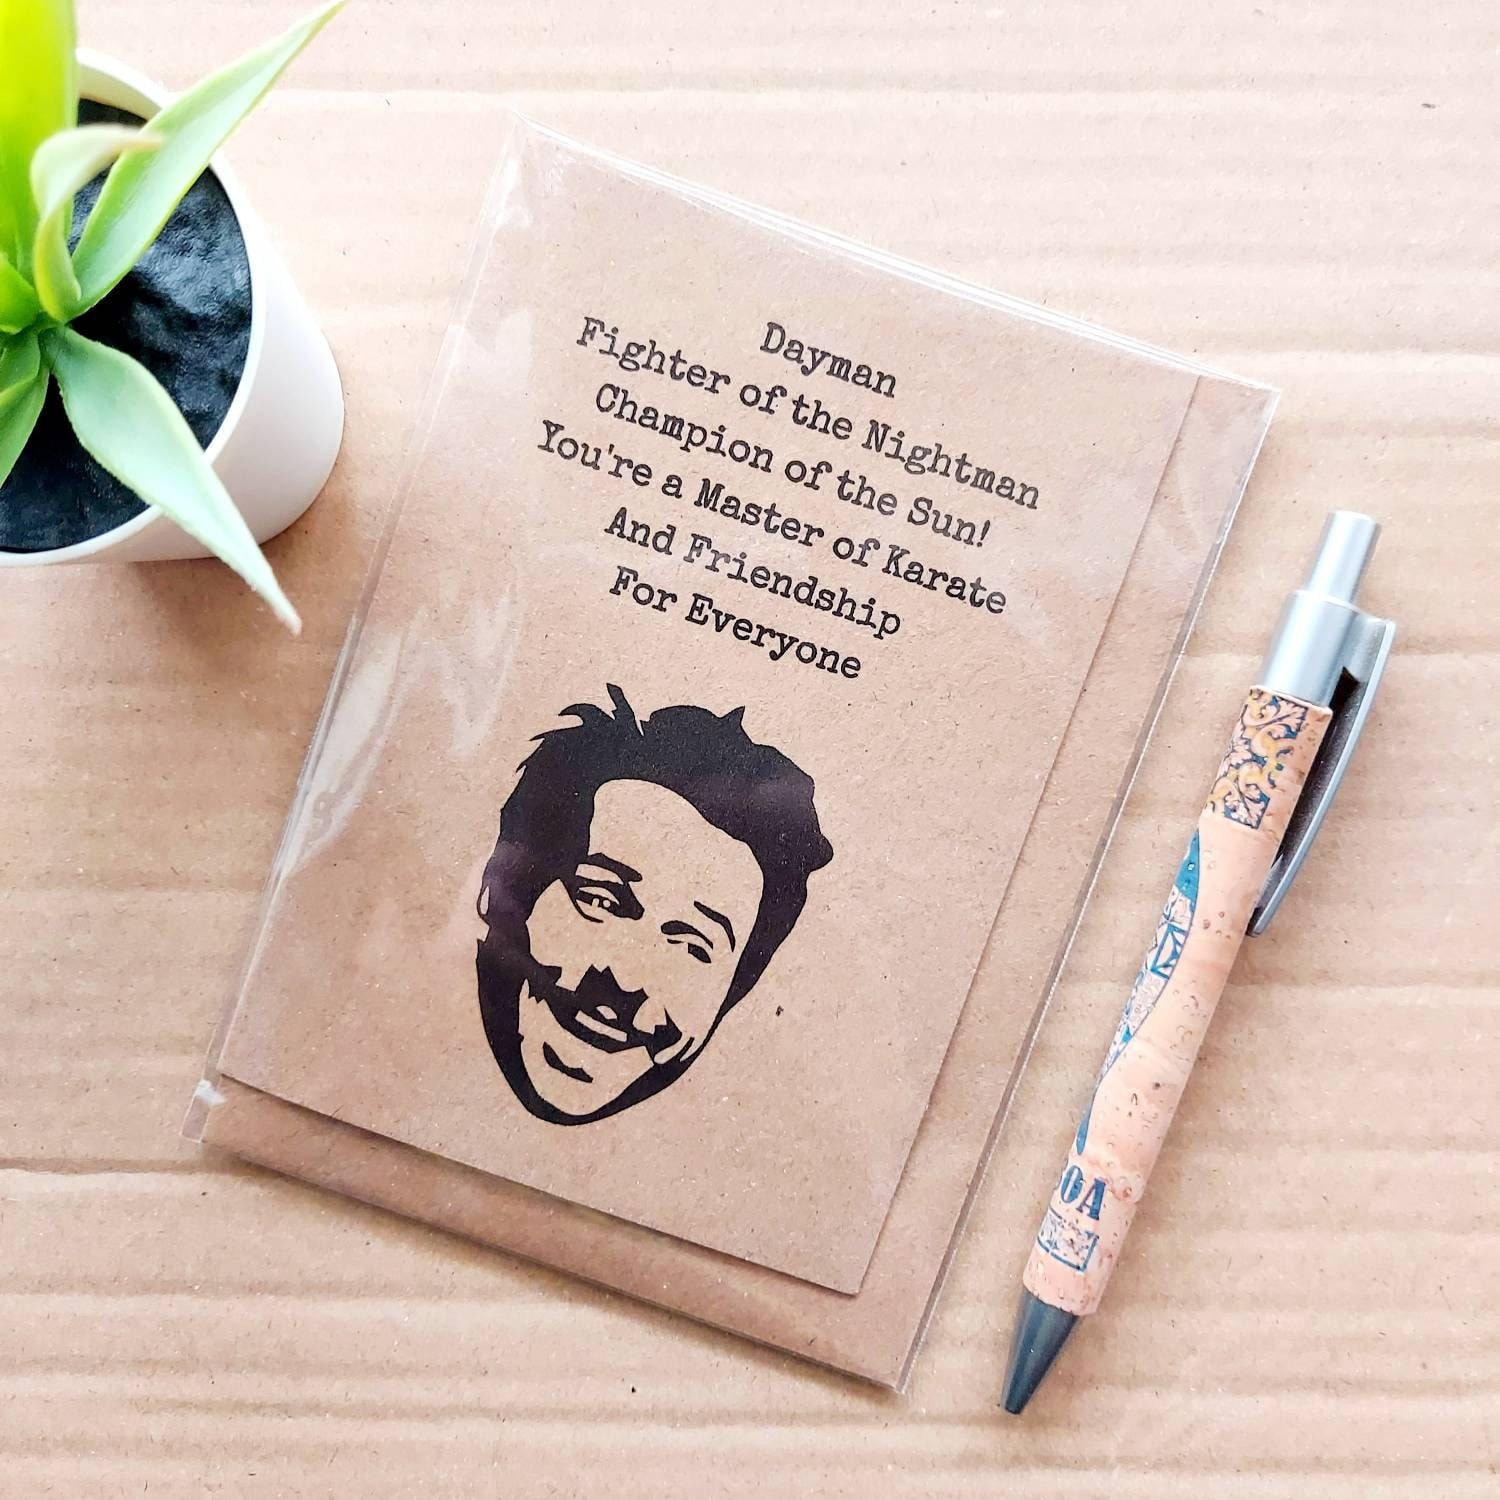 Dayman
Fighter of the Nightman
Champion of the Sun!
You're a Master of Karate
And Friendship
For Everyone
OA